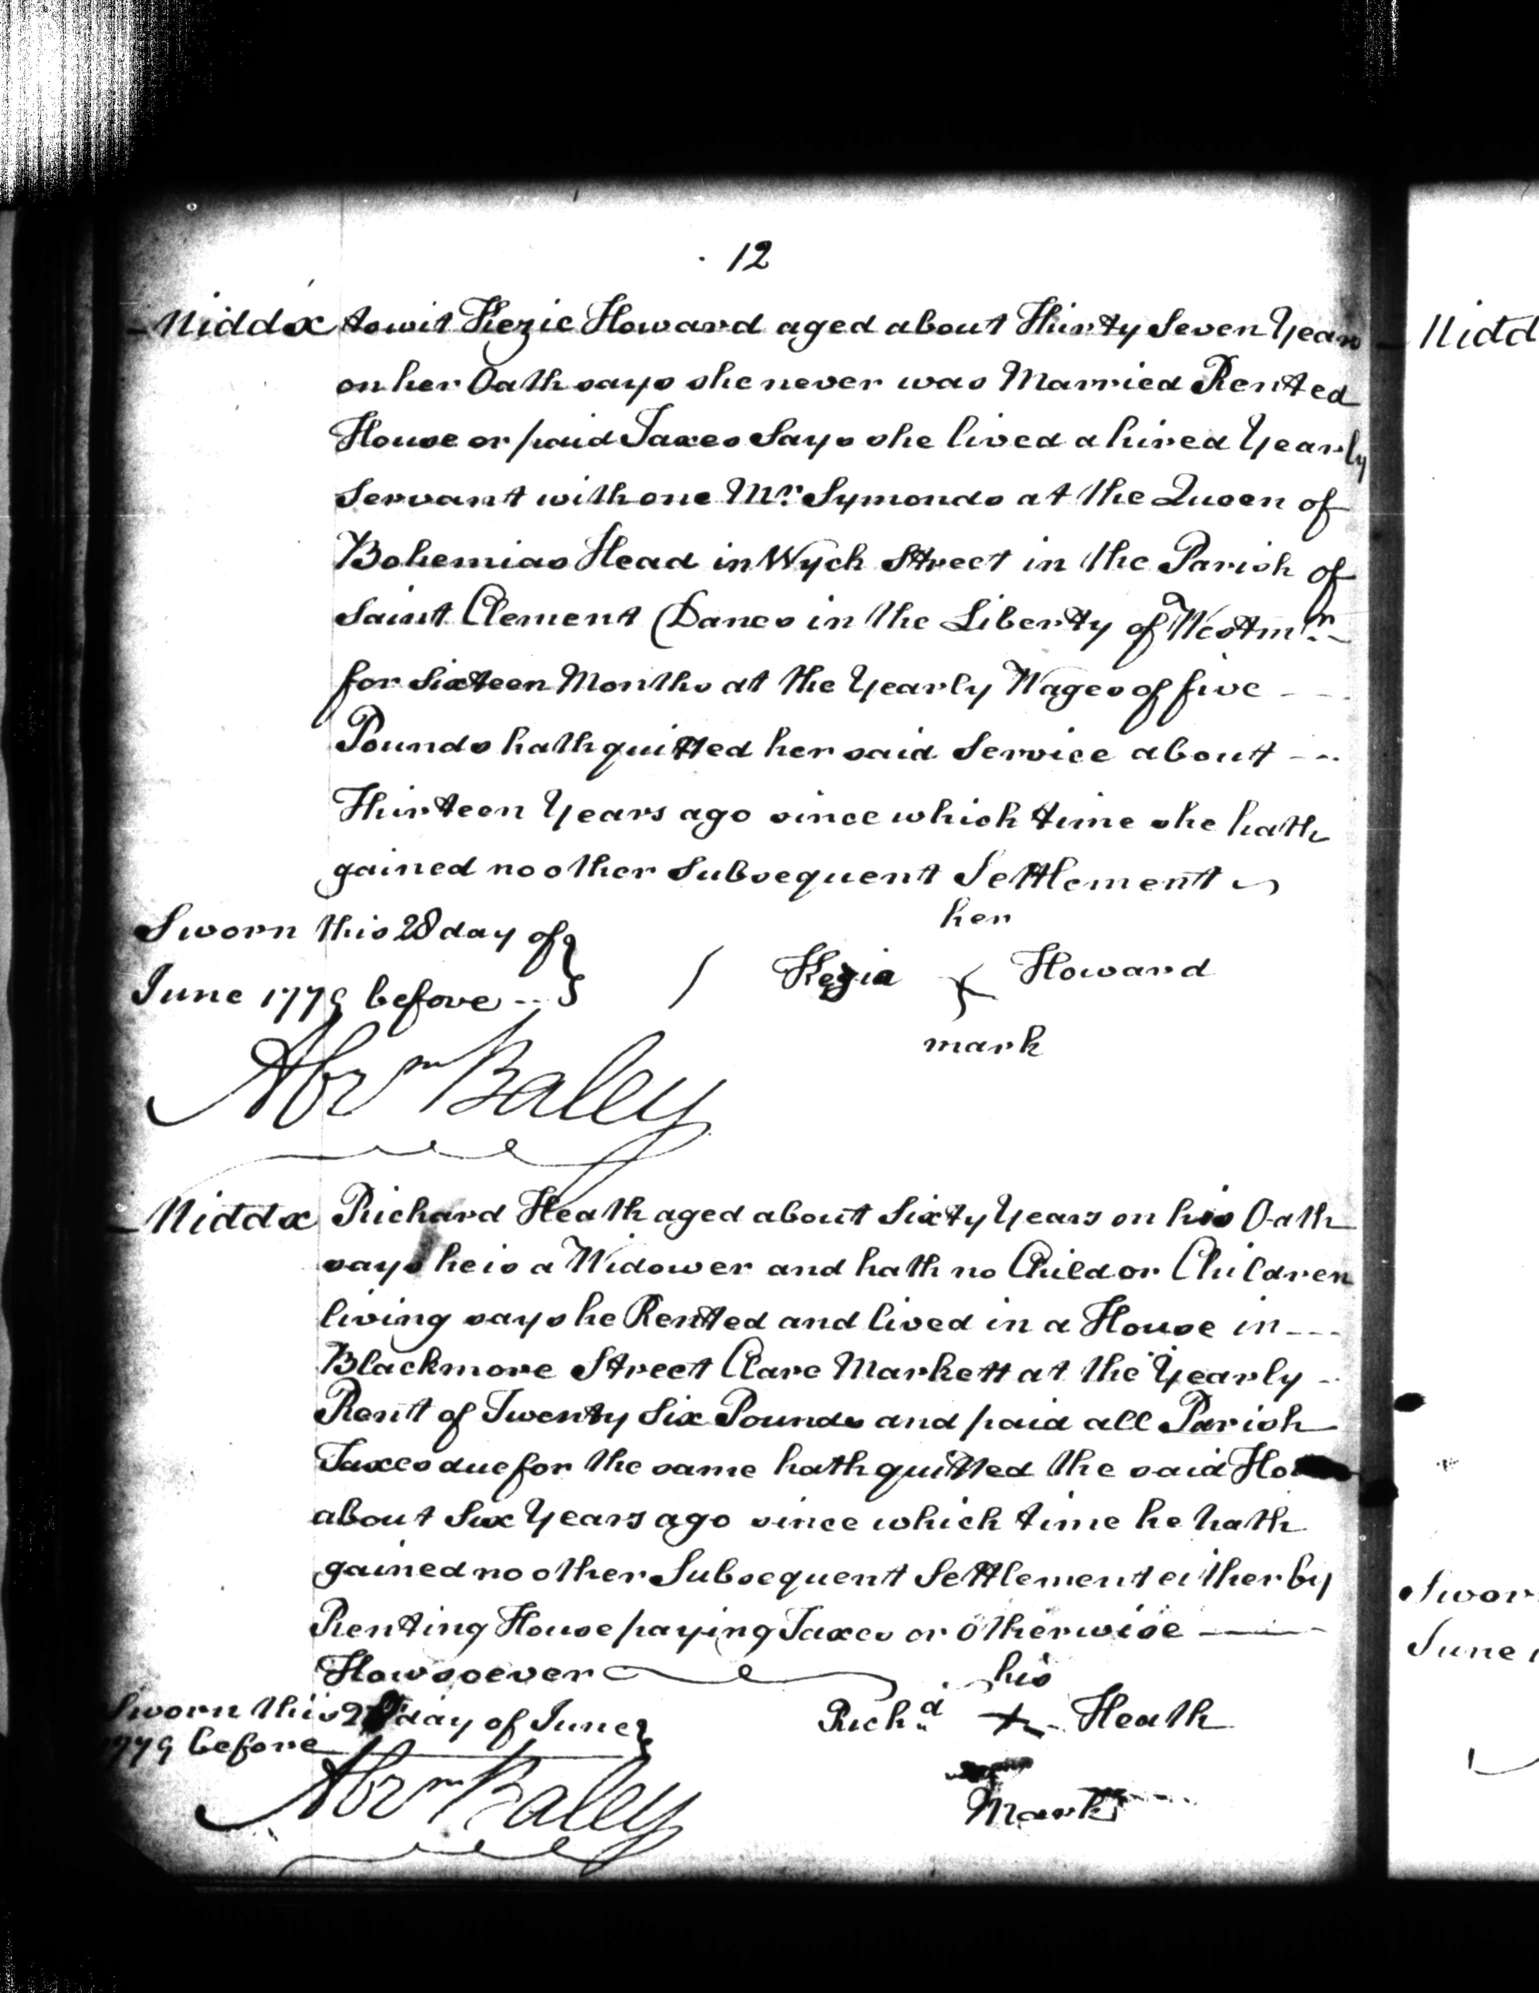 12
Middx towit Kezie Howard aged about Thirty Seven Years
on her Oath says she never was Married Rented
House or paid Taxes Says she lived a hired Yearly
Servant with one Mr. Symonds at the Queen of
Bohemias Head in Wych Street in the Parish of
Saint Clement Danes in the Liberty of Westmr.
for Sixteen Months at the Yearly Wages of five
Pounds hath quitted her said Service about
Thirteen Years ago since which time she hath
gained no other Subsequent Settlement
Sworn this 28 day of
June 1779 before
her
Kezia X Howard
mark
Abrm Baley
Middx Richard Heath aged about Sixty Years on his Oath
says he is a Widower and hath no Child or Children
living says he Rented and lived in a House in
Blackmore Street Clare Markett at the Yearly
Rent of Twenty Six Pounds and paid all Parish
Taxes due for the same hath quitted the said
about Six Years ago since which time he hath
gained no other Subsequent Settlement either by
Renting House paying Taxes or otherwise
Howsoever
Sworn this 28 day of June
1779 before
his
Richd. X Heath
Mark
Abrm Baley
Midd
Swor
June 1